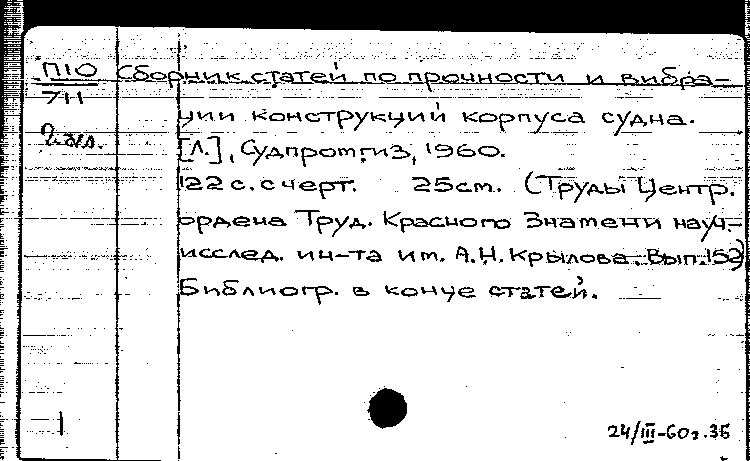 П10 Сборник статей по прочности и вибра-
711
ции конструкций корпуса судна.
2 экз.
[Л.], Судпромгиз, 1960.
122 с. с черт. 25см. (Труды Центр.
ордена Труд. Красного Знамени науч.-
исслед. ин-та им. А.Н. Крылова. Вып. 152)
Библиогр. в конце статей.
1
24/III-60г. ЗБ